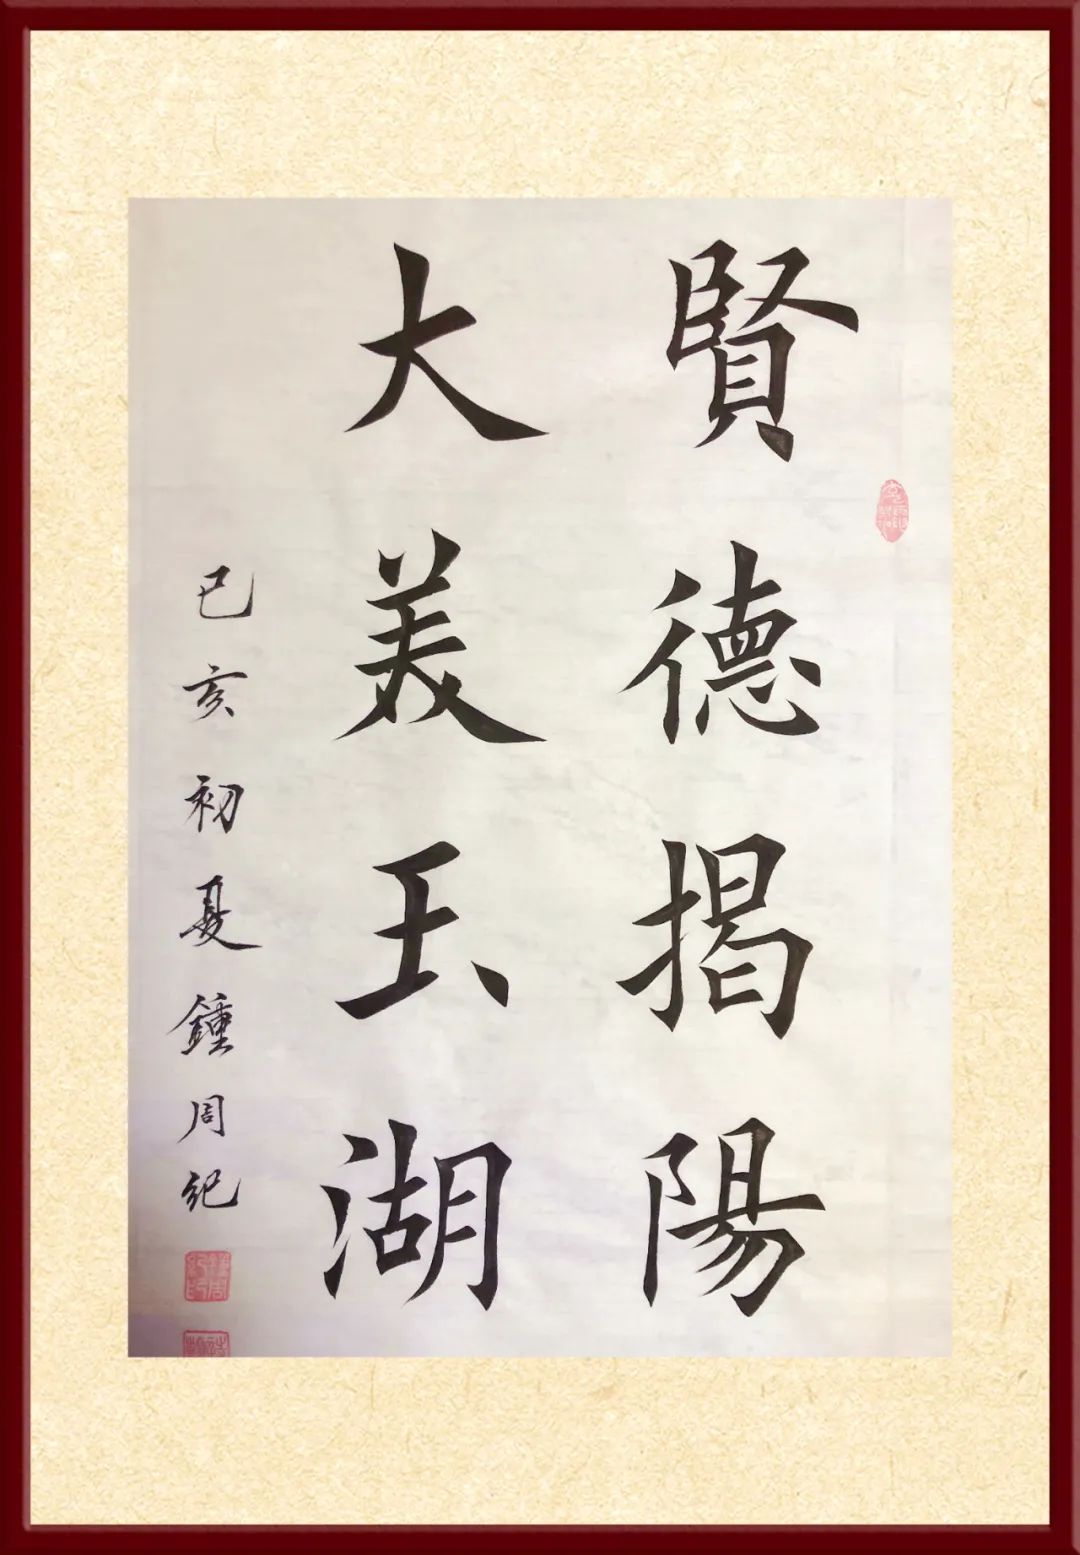 賢德揭陽
大美玉湖
己亥初夏鍾周紀